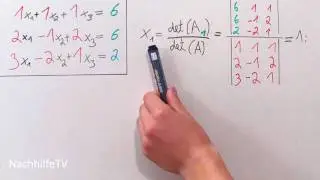 1x₁+1x₂+1x₃=6
2x₁-1x₂+2x₃=6
3x₁-2x₂+1x₃=2
x₁= det(A₁) / det(A) = |6 1 1
6 -1 2
2 -2 1| / |1 1 1
2 -1 2
3 -2 1| = 1;
NachhilfeTV